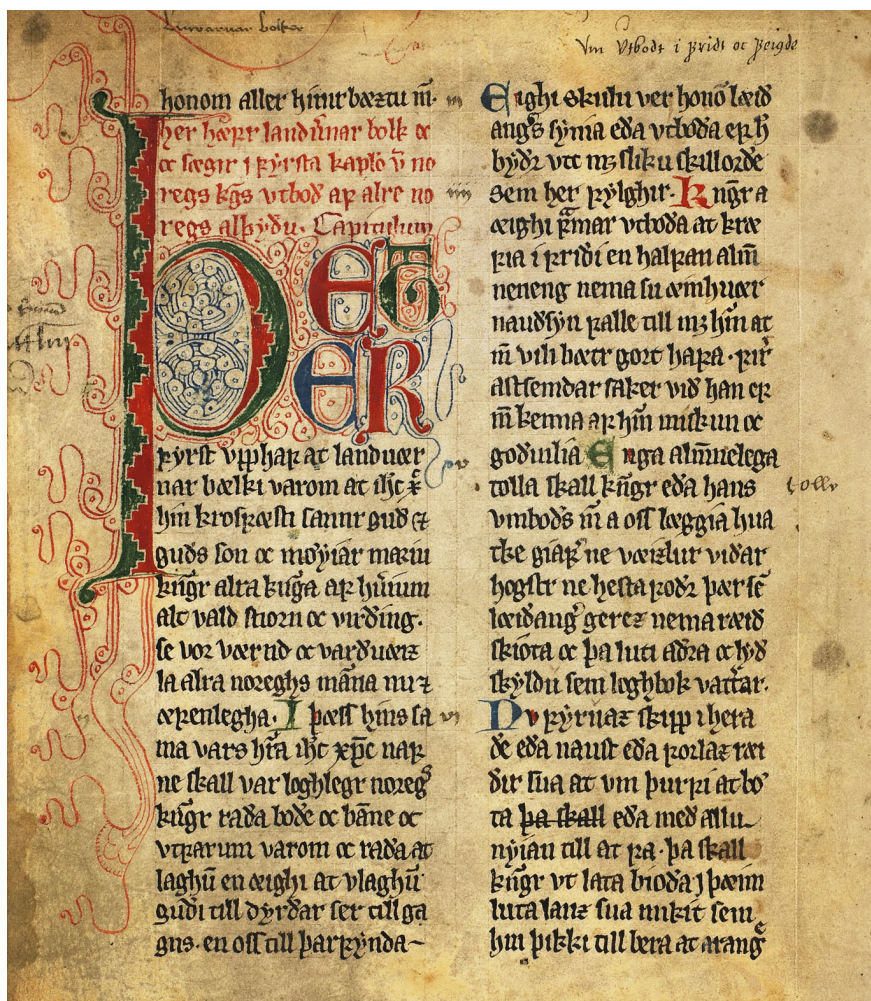 Landvarnar bolker
Vm Vtbodt i fridt oc feigde
honom aller hinir bæztu m̄·
her hæfir landūnar bolk oc
oc sæғir j fyrsta kaplo v̄ no
regs kgs vtbod af alre no
regs alþydu· Capitulum
ÞET
ER
fyrst vpphaf at landuær
nar bælki varom at ihc x̄
hin krosfæsti sannr gud ⁊
guds son oc møyiar mariu
kūgr alra kūga af hūium
alt vald stiorn oc virding·
se vor værnd oc varduæiz
la alra noreghs māna nu ⁊
æfenlegha· I þæss hins sa
ma vars hr̄a ihc xp̄c naf
ne skall var loghlegr noregs
kūgr rada bode oc bāne oc
vtfarum varom oc rada at
laghū en æighi at vlaghū
gudi till dyrdar ser till ga
gns· en oss till þarfynda
iii
Eighi skulu ver honō læid
angs synia eda vtboda er h̄
bydr vtt mz sliku skillorde
iiii
sem her fylghir· Kūgr a
æighi fr̄mar vtboda at kræ
fia i fridi en halfan alm̄
neneng nema su æinhuær
naudsyn falle till mz hm̄ at
m̄ vili bætr gort hafa· fir̄
astsemdar saker vid han er
m̄ kenna af hm̄ miskun oc
v
goduilia Enga alm̄uelega
tolla skall kūgr eda hans
tollr
vmbods m̄ a oss læggia hua
tke giaf ne væizlur vidar
hogstr ne hesta fodr þær se
læidangr gerez nema ræid
skiota oc þa luti adra oc lyd
skyldu sem loghbok vattar·
vi
Nv fyrnaz skipp i hera
de eda naust eda forlaz ræi
dir sua at vm þurfi at bø
ta þa skall eda med allu
nyiau till at fa· þa skall
kūgr vt lata bioda j þæim
luta lanz sua mikit sem
hm̄ þikki till bera at arang